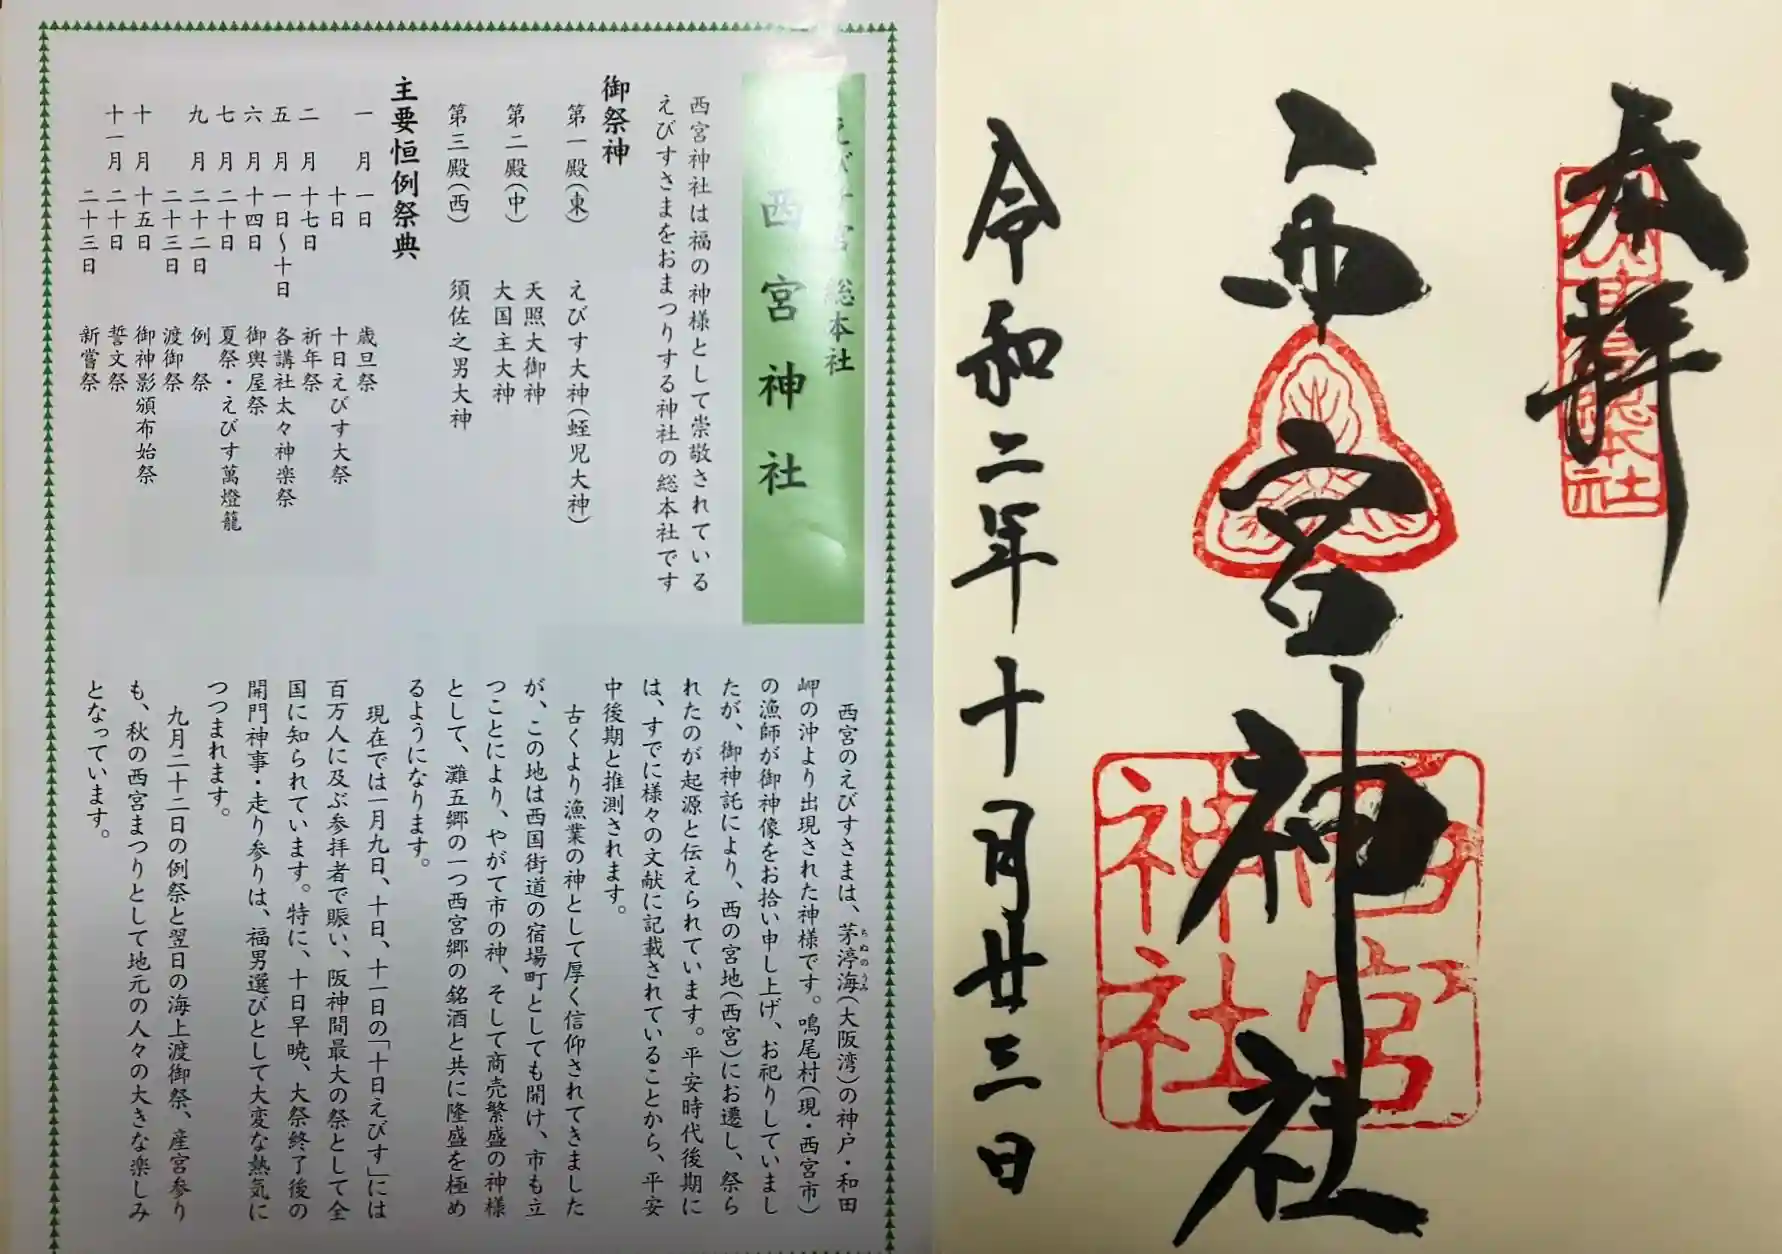 奉拝
総本社
西宮神社
西宮
神社
令和二年十月廿三日
えびす宮 総本社
西宮神社
西宮神社は福の神様として崇敬されている
えびすさまをおまつりする神社の総本社です
御祭神
第一殿(東) えびす大神(蛭児大神)
第二殿(中) 天照大御神
大国主大神
第三殿(西) 須佐之男大神
主要恒例祭典
一月一日 歳旦祭
十日 十日えびす大祭
二月十七日 祈年祭
五月一日〜十日 各講社太々神楽祭
六月十四日 御輿屋祭
七月二十日 夏祭・えびす萬燈籠
九月二十二日 例祭
二十三日 渡御祭
十月十五日 御神影頒布始祭
十一月二十日 誓文祭
二十三日 新嘗祭
西宮のえびすさまは、茅渟海(大阪湾)の神戸・和田
ちぬのうみ
岬の沖より出現された神様です。鳴尾村(現・西宮市)
の漁師が御神像をお拾い申し上げ、お祀りしていまし
たが、御神託により、西の宮地(西宮)にお遷し、祭ら
れたのが起源と伝えられています。平安時代後期に
は、すでに様々の文献に記載されていることから、平安
中後期と推測されます。
古くより漁業の神として厚く信仰されてきました
が、この地は西国街道の宿場町としても開け、市も立
つことにより、やがて市の神、そして商売繁盛の神様
として、灘五郷の一つ西宮郷の銘酒と共に隆盛を極め
るようになります。
現在では一月九日、十日、十一日の「十日えびす」には
百万人に及ぶ参拝者で賑い、阪神間最大の祭として全
国に知られています。特に、十日早暁、大祭終了後の
開門神事・走り参りは、福男選びとして大変な熱気に
つつまれます。
九月二十二日の例祭と翌日の海上渡御祭、産宮参り
も、秋の西宮まつりとして地元の人々の大きな楽しみ
となっています。